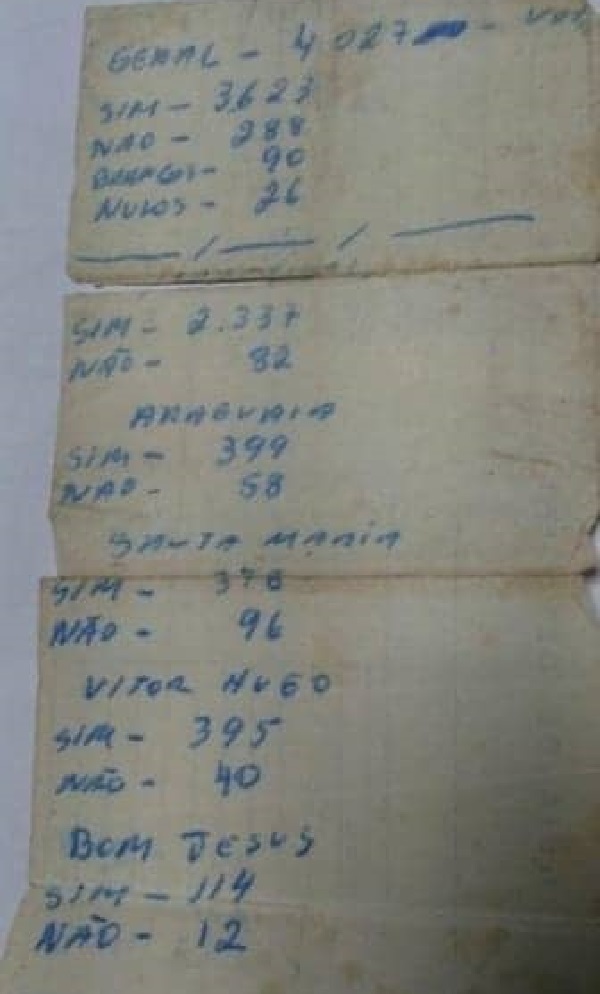 GERAL - 4027 -
SIM - 3623
NÃO - 288
BRANCOS - 90
NULOS - 26
___ / ___ / ___
SIM - 2.337
NÃO - 82
ARAGUAIA
SIM - 399
NÃO - 58
SANTA MARIA
SIM - 378
NÃO - 96
VITOR HUGO
SIM - 395
NÃO - 40
BOM JESUS
SIM - 114
NÃO - 12